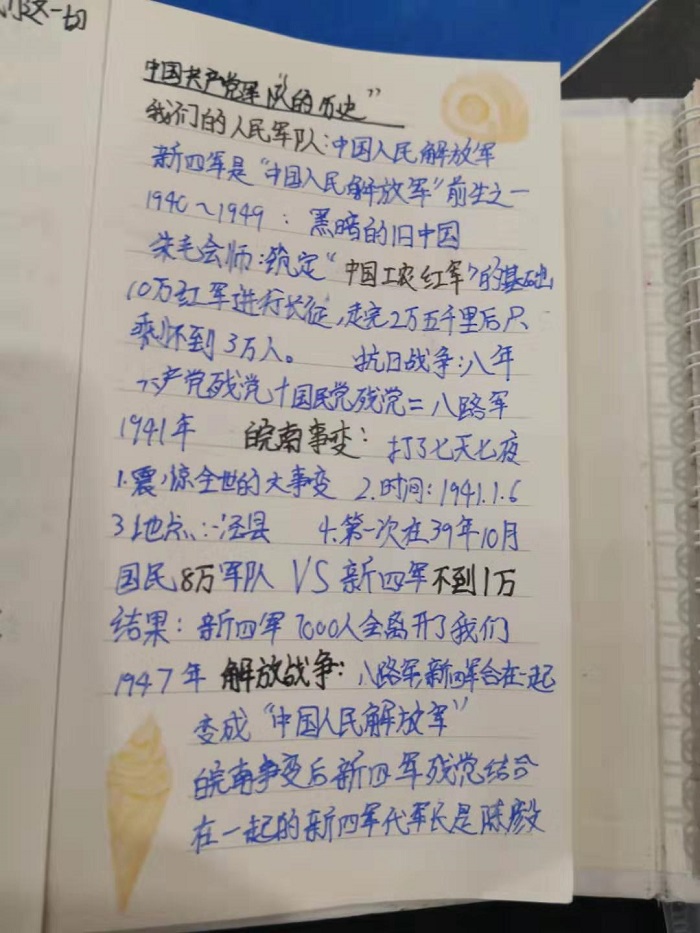 这一切
中国共产党军队的历史”
我们的人民军队:中国人民解放军
新四军是“中国人民解放军”前生之一
1940~1949 : 黑暗的旧中国
朱毛会师:筑定“中国工农红军”的基础
10万红军进行长征,走完2万五千里后只
剩怀到3万人。 抗日战争:八年
产党残党+国民党残党=八路军
1941年 皖南事变: 打了七天七夜
1.震惊全世的大事变 2.时间:1941.1.6
3.地点:泾县 4.第一次在39年10月
国民8万军队 VS 新四军不到1万
结果: 新四军7000人全离开了我们
1947年 解放战争: 八路军新四军合在一起
变成“中国人民解放军”
皖南事变后新四军残党结合
在一起的新四军代军长是陈毅